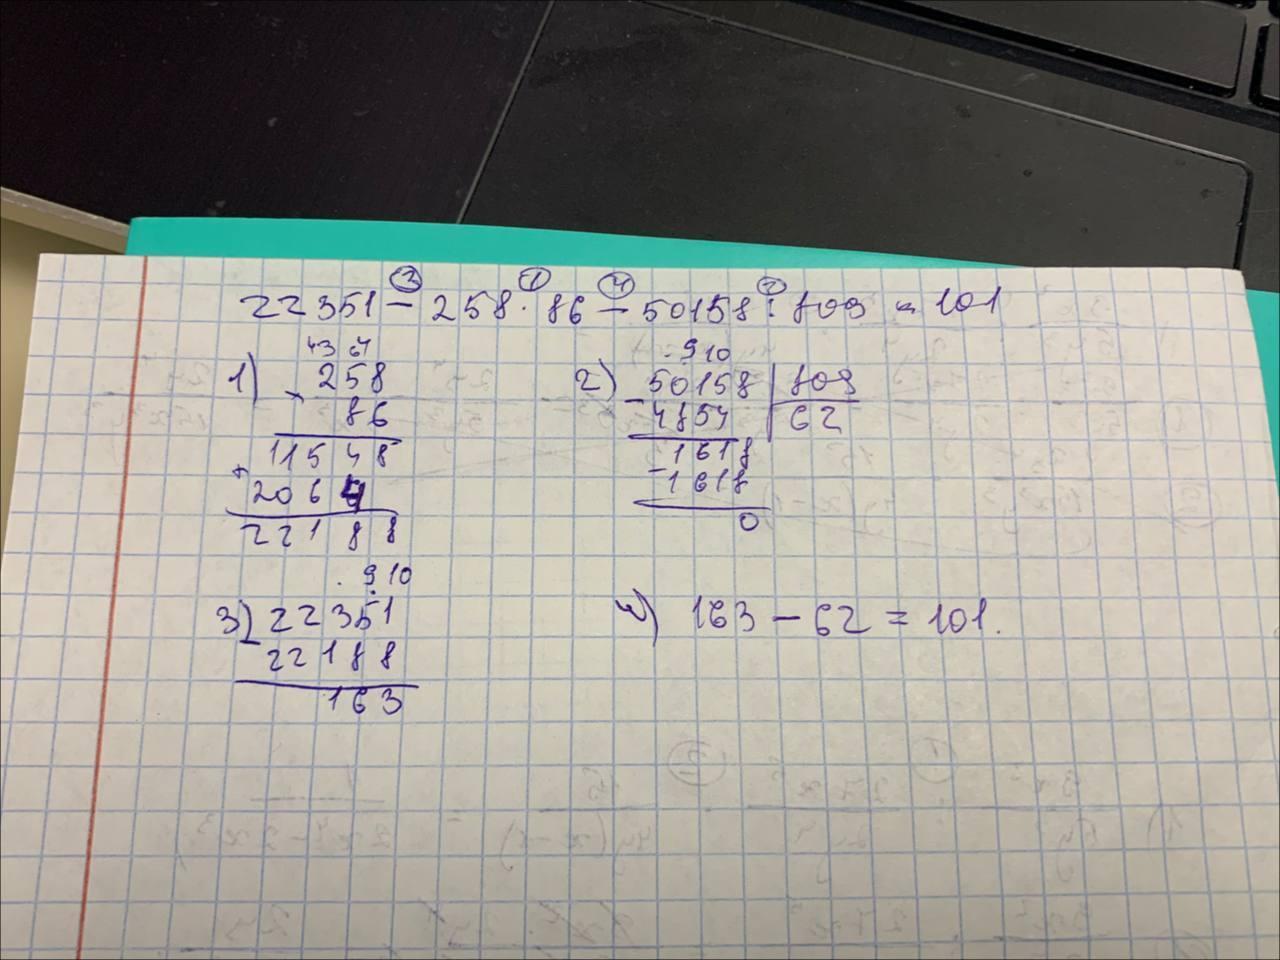 ③ ① ④ ②
22351 - 258 · 86 - 50158 : 809 = 101
43 64
1) 258
× 86
11548
+ 2064
22188
. 9 10
2) 50158 | 809
- 4854 | 62
1618
- 1618
0
. 9 10
3) 22351
- 22188
163
4) 163 - 62 = 101.